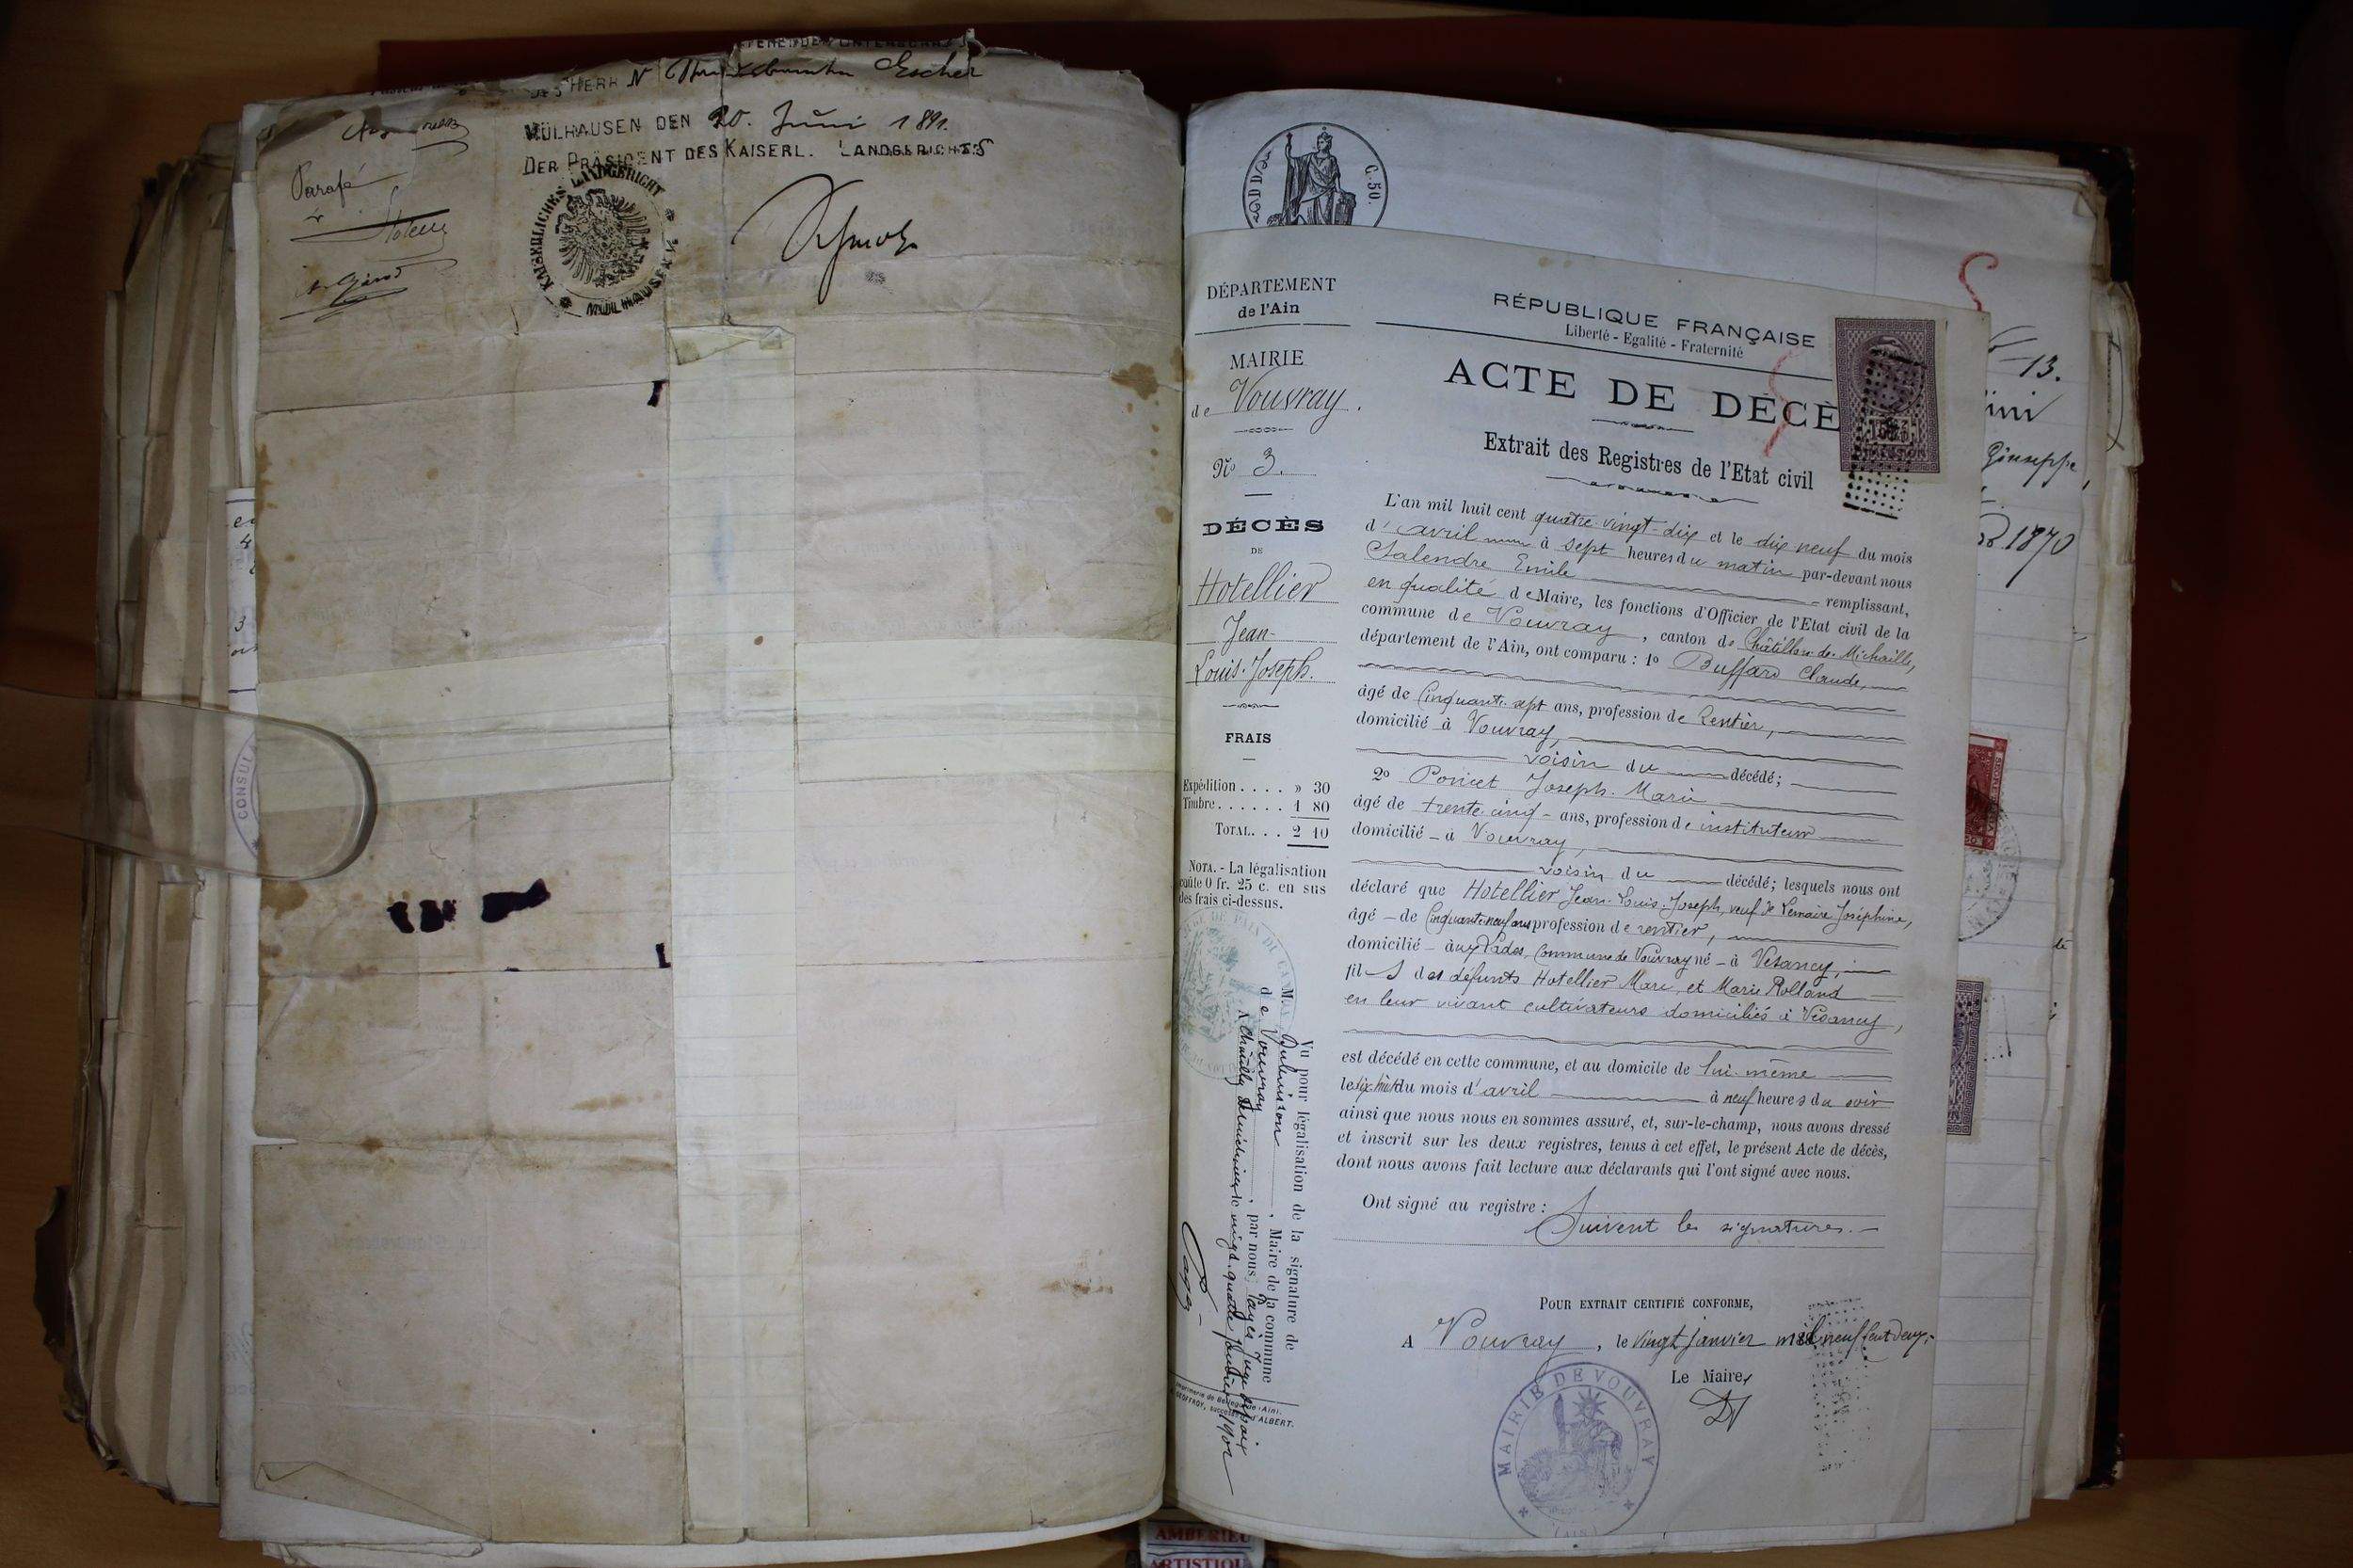 DES HERR N Escher
MÜLHAUSEN DEN 20. Juni 1891.
DER PRÄSIDENT DES KAISERL. LANDGERICHTS
Parafé
KAISERLICHES LANDGERICHT
MÜLHAUSEN
CONSUL
C. 50.
DÉPARTEMENT
de l'Ain
MAIRIE
de Vouvray.
No 3.
DÉCÈS
DE
Hotellier
Jean-
Louis-Joseph.
FRAIS
Expédition . . . . » 30
Timbre . . . . . . 1 80
TOTAL. . . 2 10
NOTA. - La légalisation
coûte 0 fr. 25 c. en sus
des frais ci-dessus.
Vu pour légalisation de la signature de
M. Dubuisson, Maire de la commune
de Vouvray, par nous, Juge de paix
à Châtillon le vingt-quatre janvier 1902
Imprimerie de Bellegarde (Ain).
GEOFFROY, successeur ALBERT.
RÉPUBLIQUE FRANÇAISE
Liberté - Egalité - Fraternité
ACTE DE DÉCÈ
Extrait des Registres de l'Etat civil
L'an mil huit cent quatre-vingt-dix et le dix neuf du mois
d'avril à sept heures du matin par-devant nous
Salendre Emile remplissant,
en qualité de Maire, les fonctions d'Officier de l'Etat civil de la
commune de Vouvray, canton de Châtillon-de-Michaille,
département de l'Ain, ont comparu : 1o Buffard Claude,
âgé de Cinquante-sept ans, profession de Rentier,
domicilié à Vouvray,
voisin du décédé;
2o Poncet Joseph-Marie
âgé de trente-cinq - ans, profession de instituteur
domicilié - à Vouvray,
voisin du décédé; lesquels nous ont
déclaré que Hotellier Jean-Louis-Joseph, veuf de Lemaire Joséphine,
âgé - de Cinquante-neuf ans profession de rentier,
domicilié - aux Commune de Vouvray né - à Vesancy,
fils des défunts Hotellier Marc, et Marie Rolland
en leur vivant cultivateurs domiciliés à Vesancy,
est décédé en cette commune, et au domicile de lui-même
le dix-huit du mois d'avril à neuf heures du soir
ainsi que nous nous en sommes assuré, et, sur-le-champ, nous avons dressé
et inscrit sur les deux registres, tenus à cet effet, le présent Acte de décès,
dont nous avons fait lecture aux déclarants qui l'ont signé avec nous.
Ont signé au registre :
Suivent les signatures.
POUR EXTRAIT CERTIFIÉ CONFORME,
A Vouvray, le vingt janvier mil neuf cent deux.
Le Maire,
MAIRIE DE VOUVRAY
(AIN)
13.
Giuseppe,
1870
AMBERIEU
ARTISTIQU